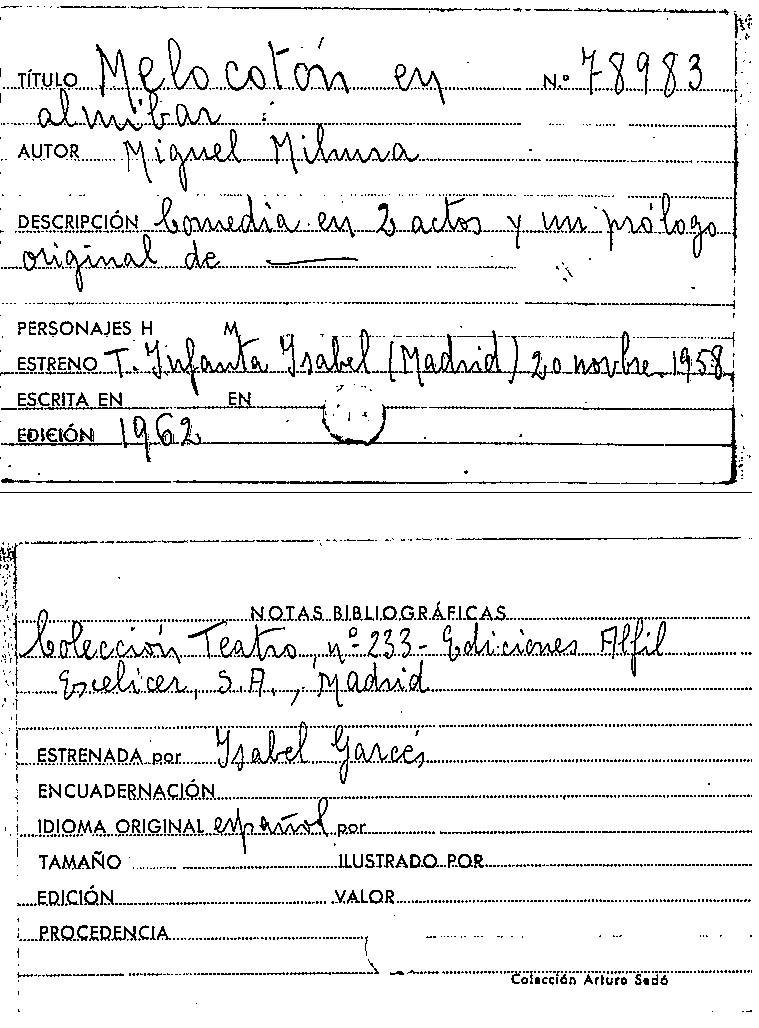 TÍTULO Melocotón en N.º 78983
almíbar
AUTOR Miguel Mihura
DESCRIPCIÓN Comedia en 2 actos y un prólogo
original de
PERSONAJES H M
ESTRENO T. Infanta Isabel (Madrid) 20 novbre. 1958
ESCRITA EN EN
EDICIÓN 1962
NOTAS BIBLIOGRÁFICAS
Colección Teatro, nº 233 - Ediciones Alfil
Escelicer, S.A., Madrid
ESTRENADA por Isabel Garcés
ENCUADERNACIÓN
IDIOMA ORIGINAL español por
TAMAÑO ILUSTRADO POR
EDICIÓN VALOR
PROCEDENCIA
Colección Arturo Sedó